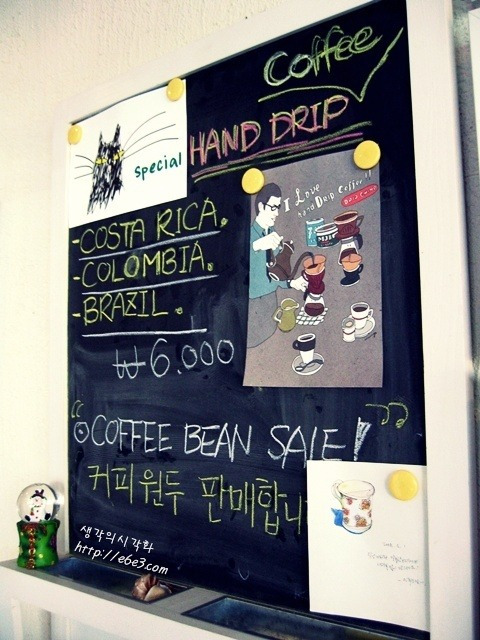 Coffee
HAND DRIP
special
I Love
hand Drip Coffee!!
-COSTA RICA.
-COLOMBIA.
-BRAZIL.
₩6.000
"COFFEE BEAN SALE!"
커피원두 판매합니
생각의시각화
http://e6e3.com